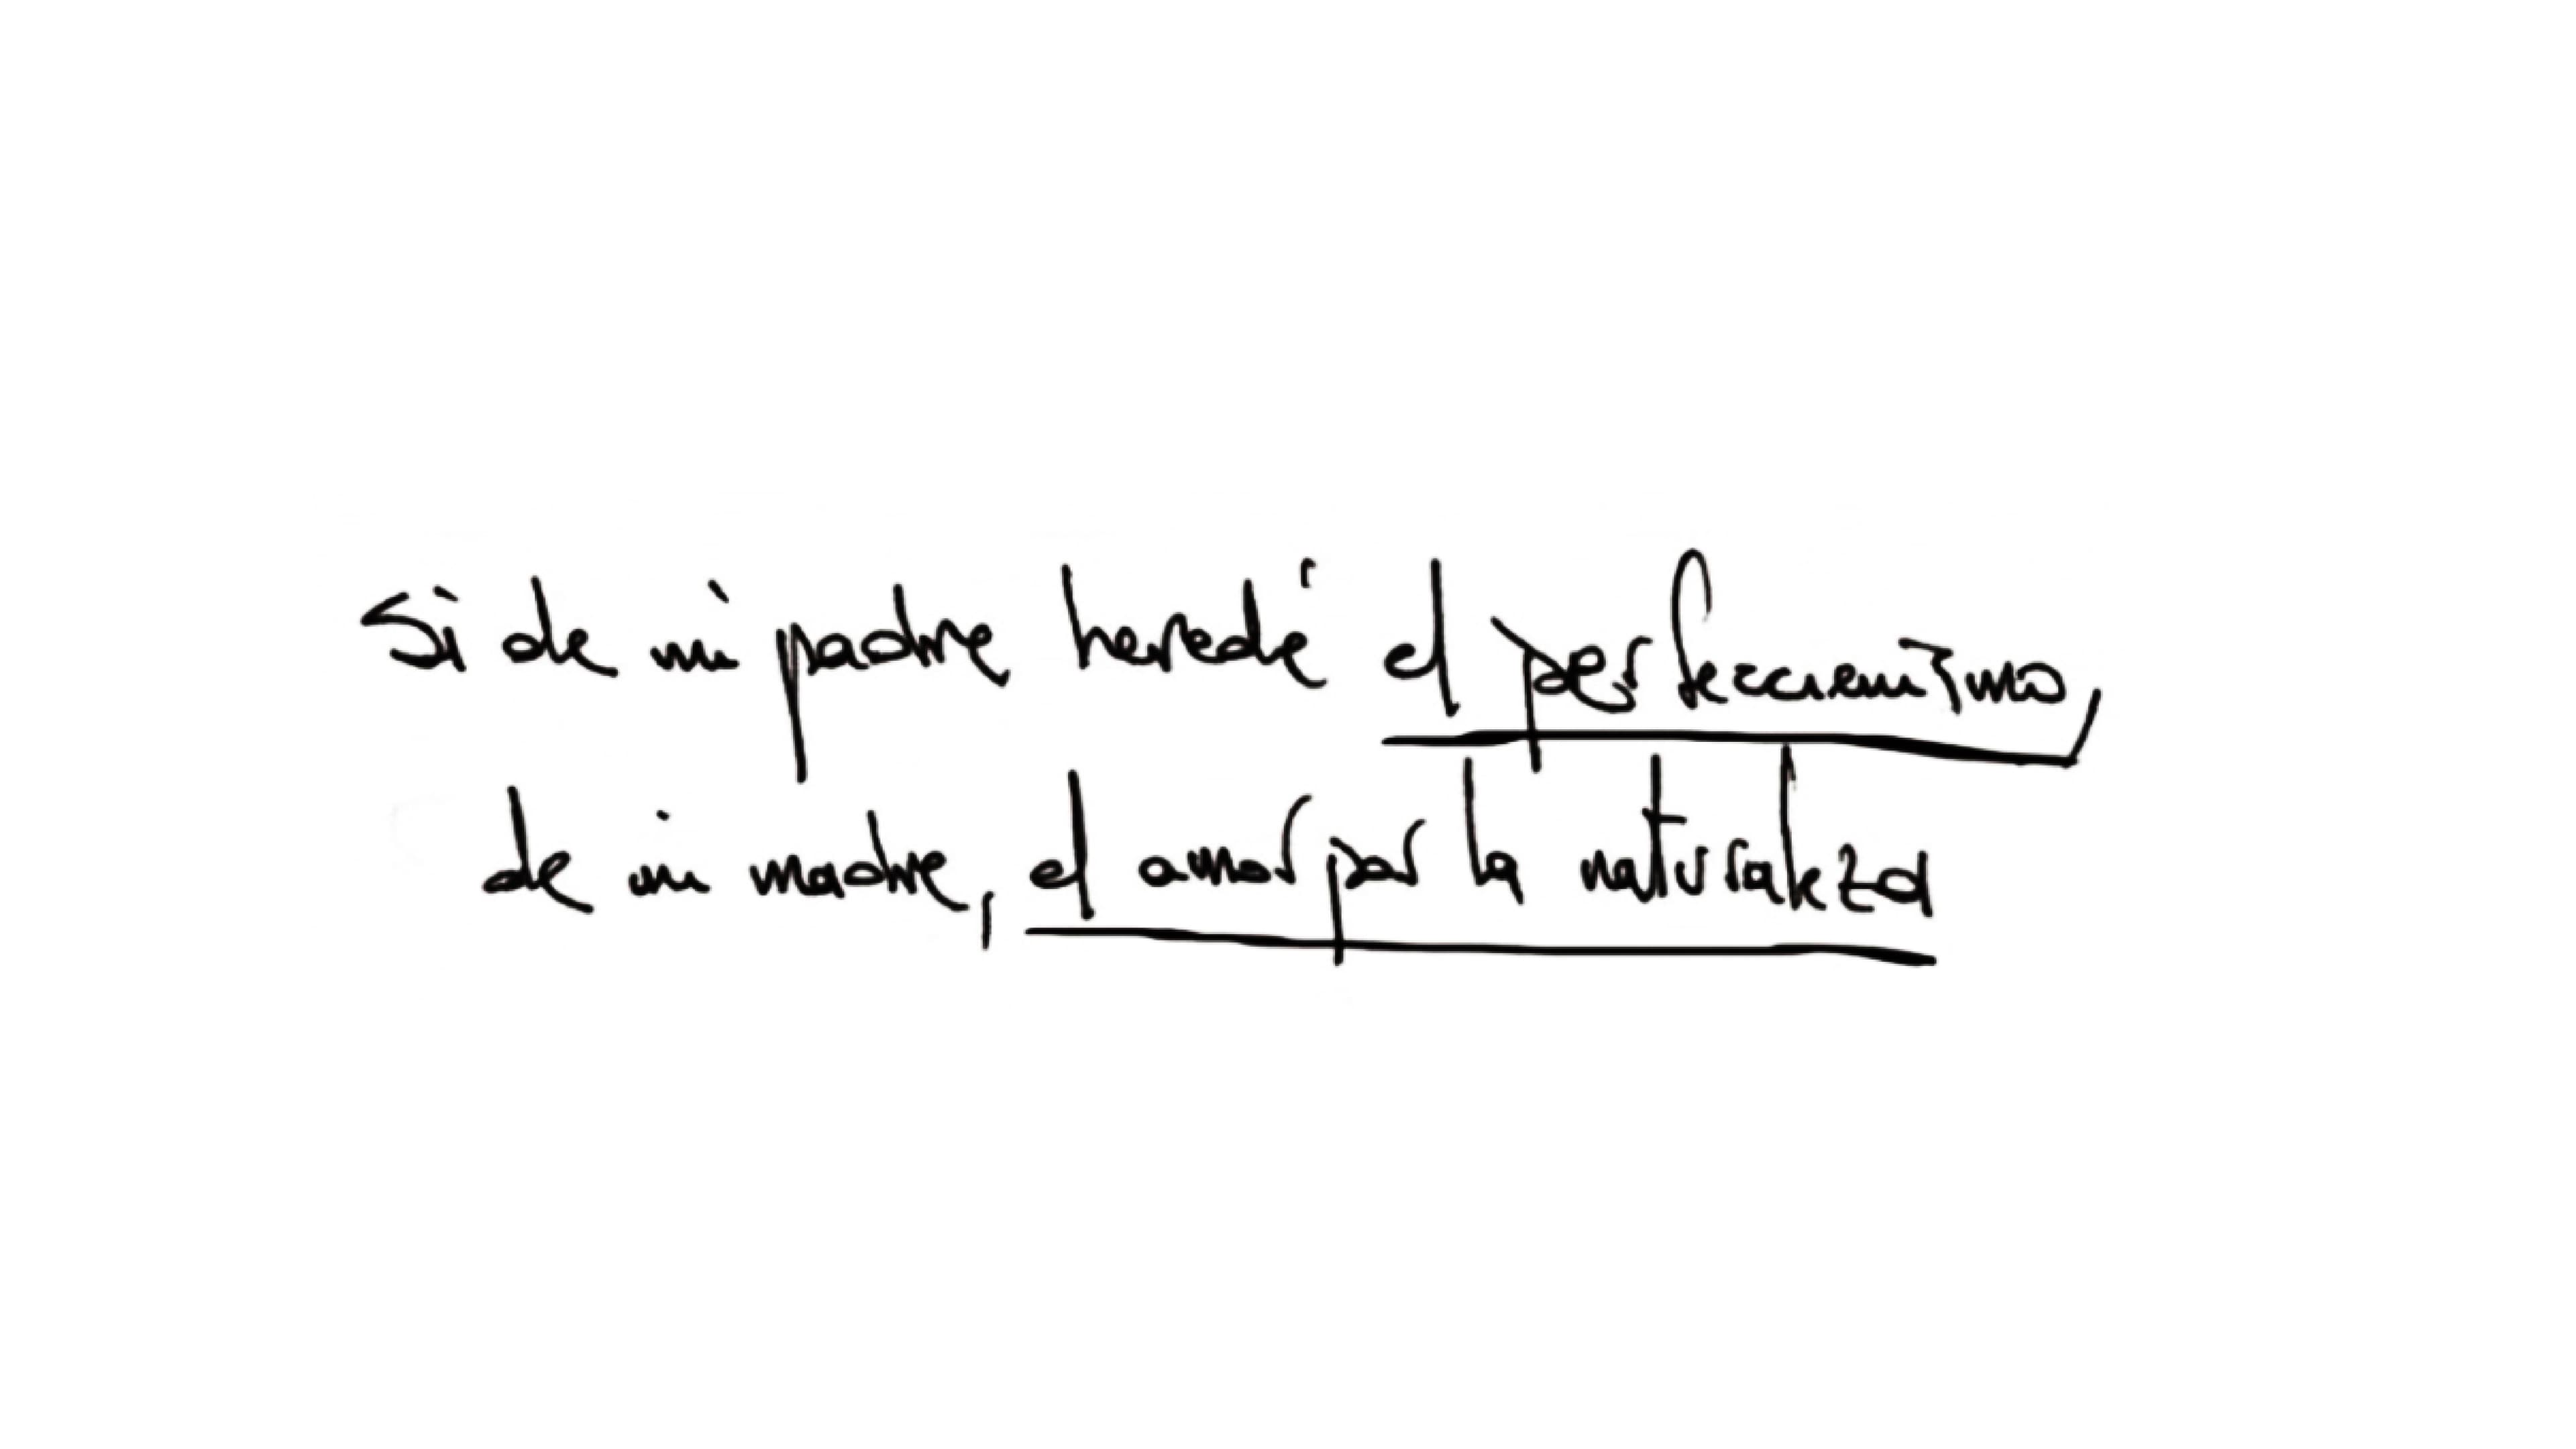 Si de mi padre heredé el perfeccionismo,
de mi madre, el amor por la naturaleza